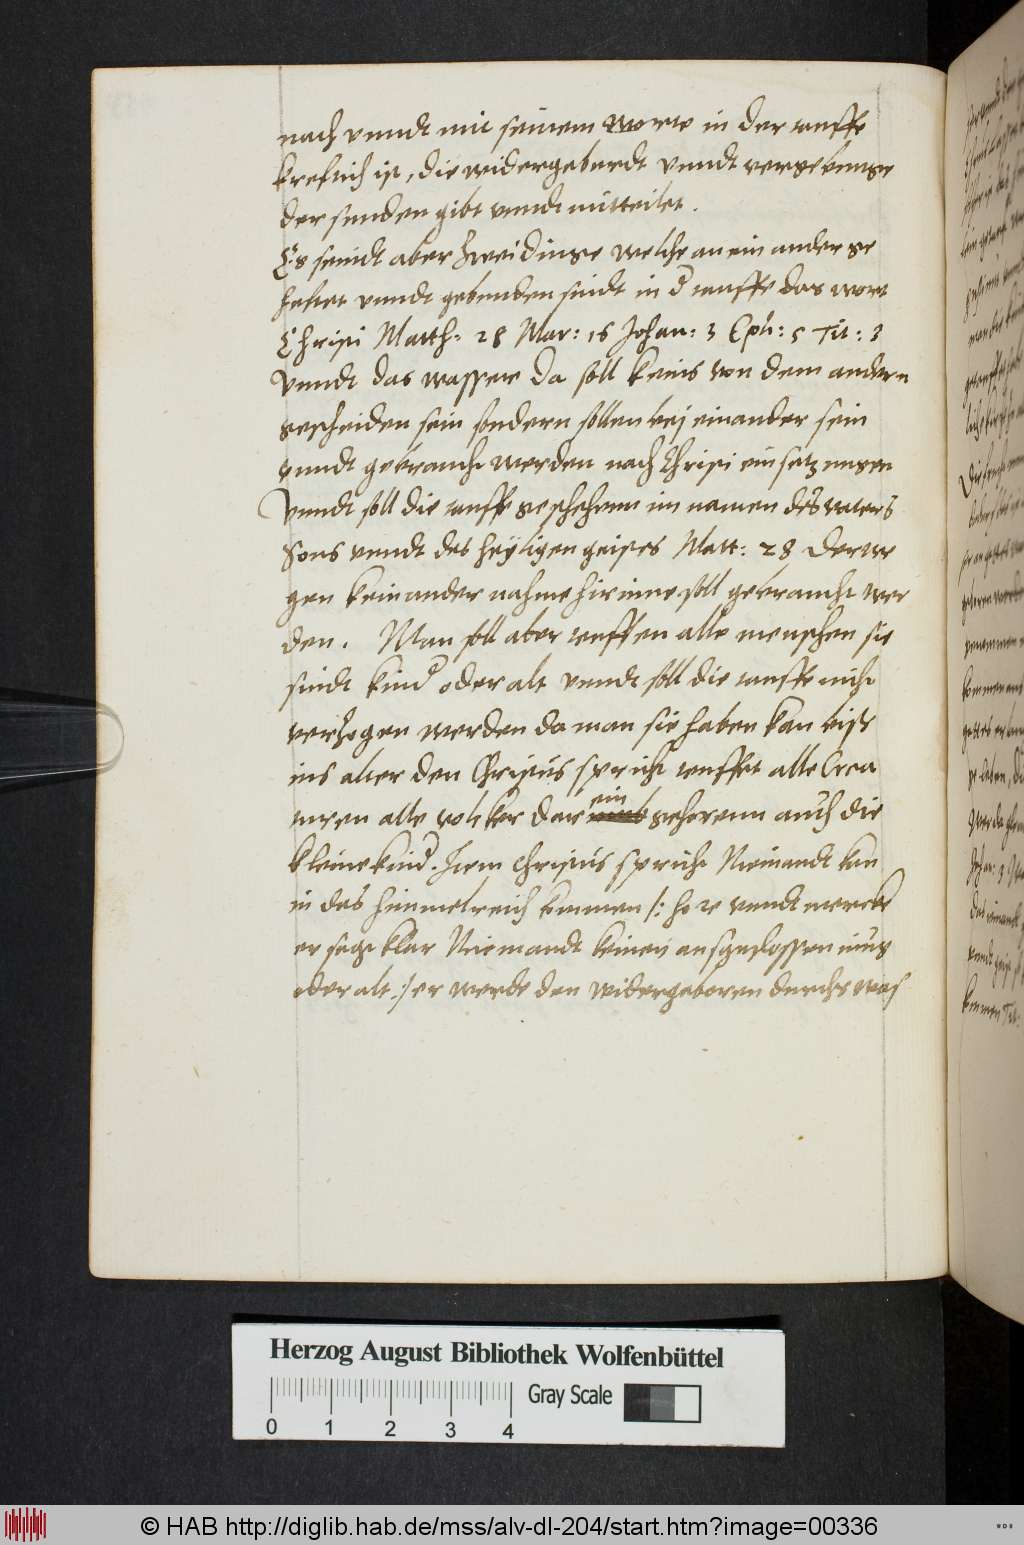 nach vnndt mit seinem worte in der tauffe
kreftich ist, die widergeburdt vnndt vergebunge
der sunden gibt vnndt mitteilet.
Es seindt aber zwei dinge welche an ein ander ge
heftet vnndt gebunden sindt in d tauffe das wort
Christi Matth: 28 Mar: 16 Johan: 3 Eph: 5 Tit: 3
vnndt das wasser da soll keins von dem andern
gescheiden sein sondern sollen bej einander sein
vnndt gebraucht werden nach Christi einsetzungen
Vnndt soll die tauffe geschehenn im namen des vaters
Sons vnndt des heyligen geistes Matt: 28 Derwe
gen kein ander nahme hirinne soll gebraucht wer
den. Man soll aber teuffen alle menschen sie
sindt kind oder alt vnndt soll die tauffe nicht
verzogen werden da man sie haben kan biss
ins alter den Christus spricht teuffet alle Crea
turen alle volcker dar ein gehorenn auch die
kleine kind. Item Christus spricht Niemandt kan
in das himmelreich kommen /: hore vnndt mercke
er sagt klar Niemandt keinen ausgeslossen iung
oder alt :/ er werde den widergeboren durchs was
Herzog August Bibliothek Wolfenbüttel
Gray Scale
0 1 2 3 4
© HAB http://diglib.hab.de/mss/alv-dl-204/start.htm?image=00336